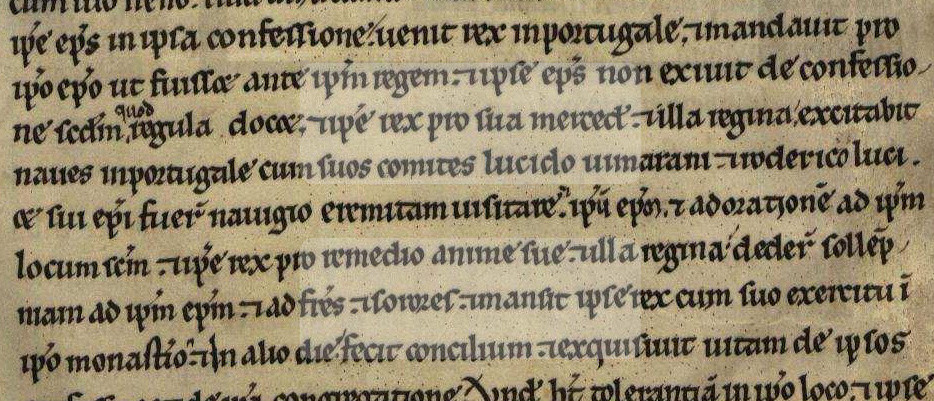 ip̄e ep̄s in ipsa confessione. uenit rex in portugale, ⁊ mandauit pro
ip̄o ep̄o ut fuissæ ante ip̄m regem. ⁊ ipse ep̄s non exiuit de confessio
ne sc̄dm quod regula docæ, ⁊ ip̄e rex pro sua merced̄. ⁊ illa regina, excitabit
naues in portugale cum suos comites lucido uimarani ⁊ roderico luci.
æ sui ep̄i fuer̄ nauigio eremitam uisitare. ip̄ū ep̄m. ⁊ adorationē ad ip̄m
locum sc̄m. ⁊ ip̄e rex pro remedio anime sue. ⁊ illa regina, deder̄ sollep̄
niam ad ip̄m ep̄m. ⁊ ad fr̄es. ⁊ sorores. ⁊ mansit ipse rex cum suo exercitu ī
ip̄o monastīo. ⁊ In alio die fecit concilium. ⁊ exquisiuit uitam de ipsos
congregatione Vnde hn̄t tolerantiā in ip̄o loco, ⁊ ipse